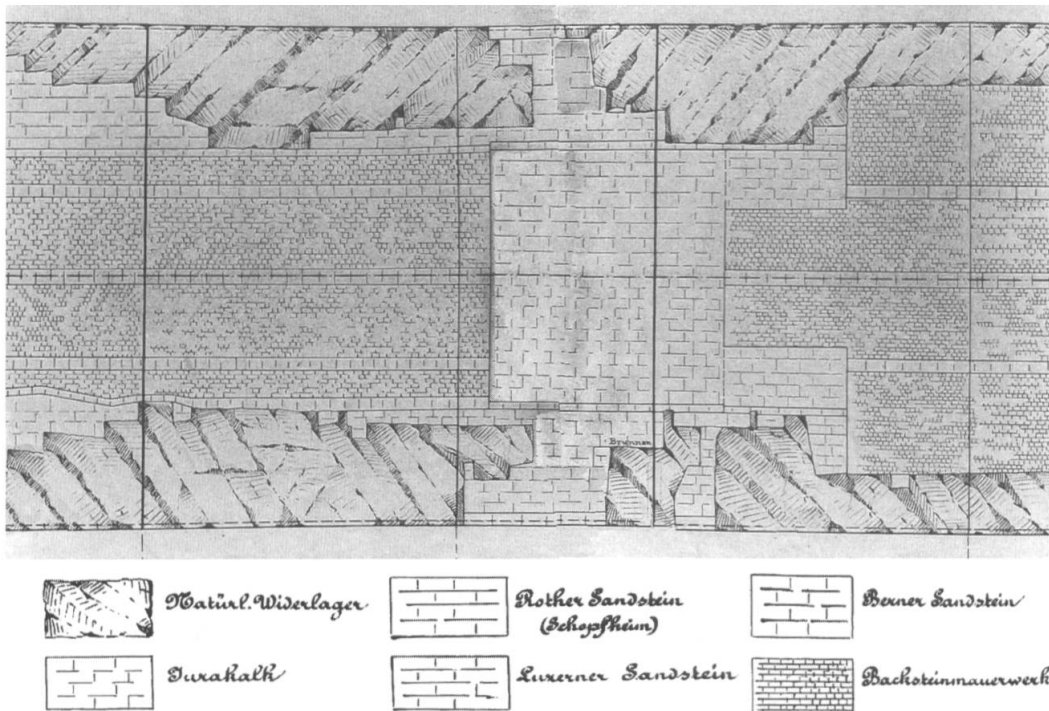 Brunnen
Natürl. Widerlager
Rother Sandstein
(Schopfheim)
Berner Sandstein
Jurakalk
Luzerner Sandstein
Backsteinmauerwerk